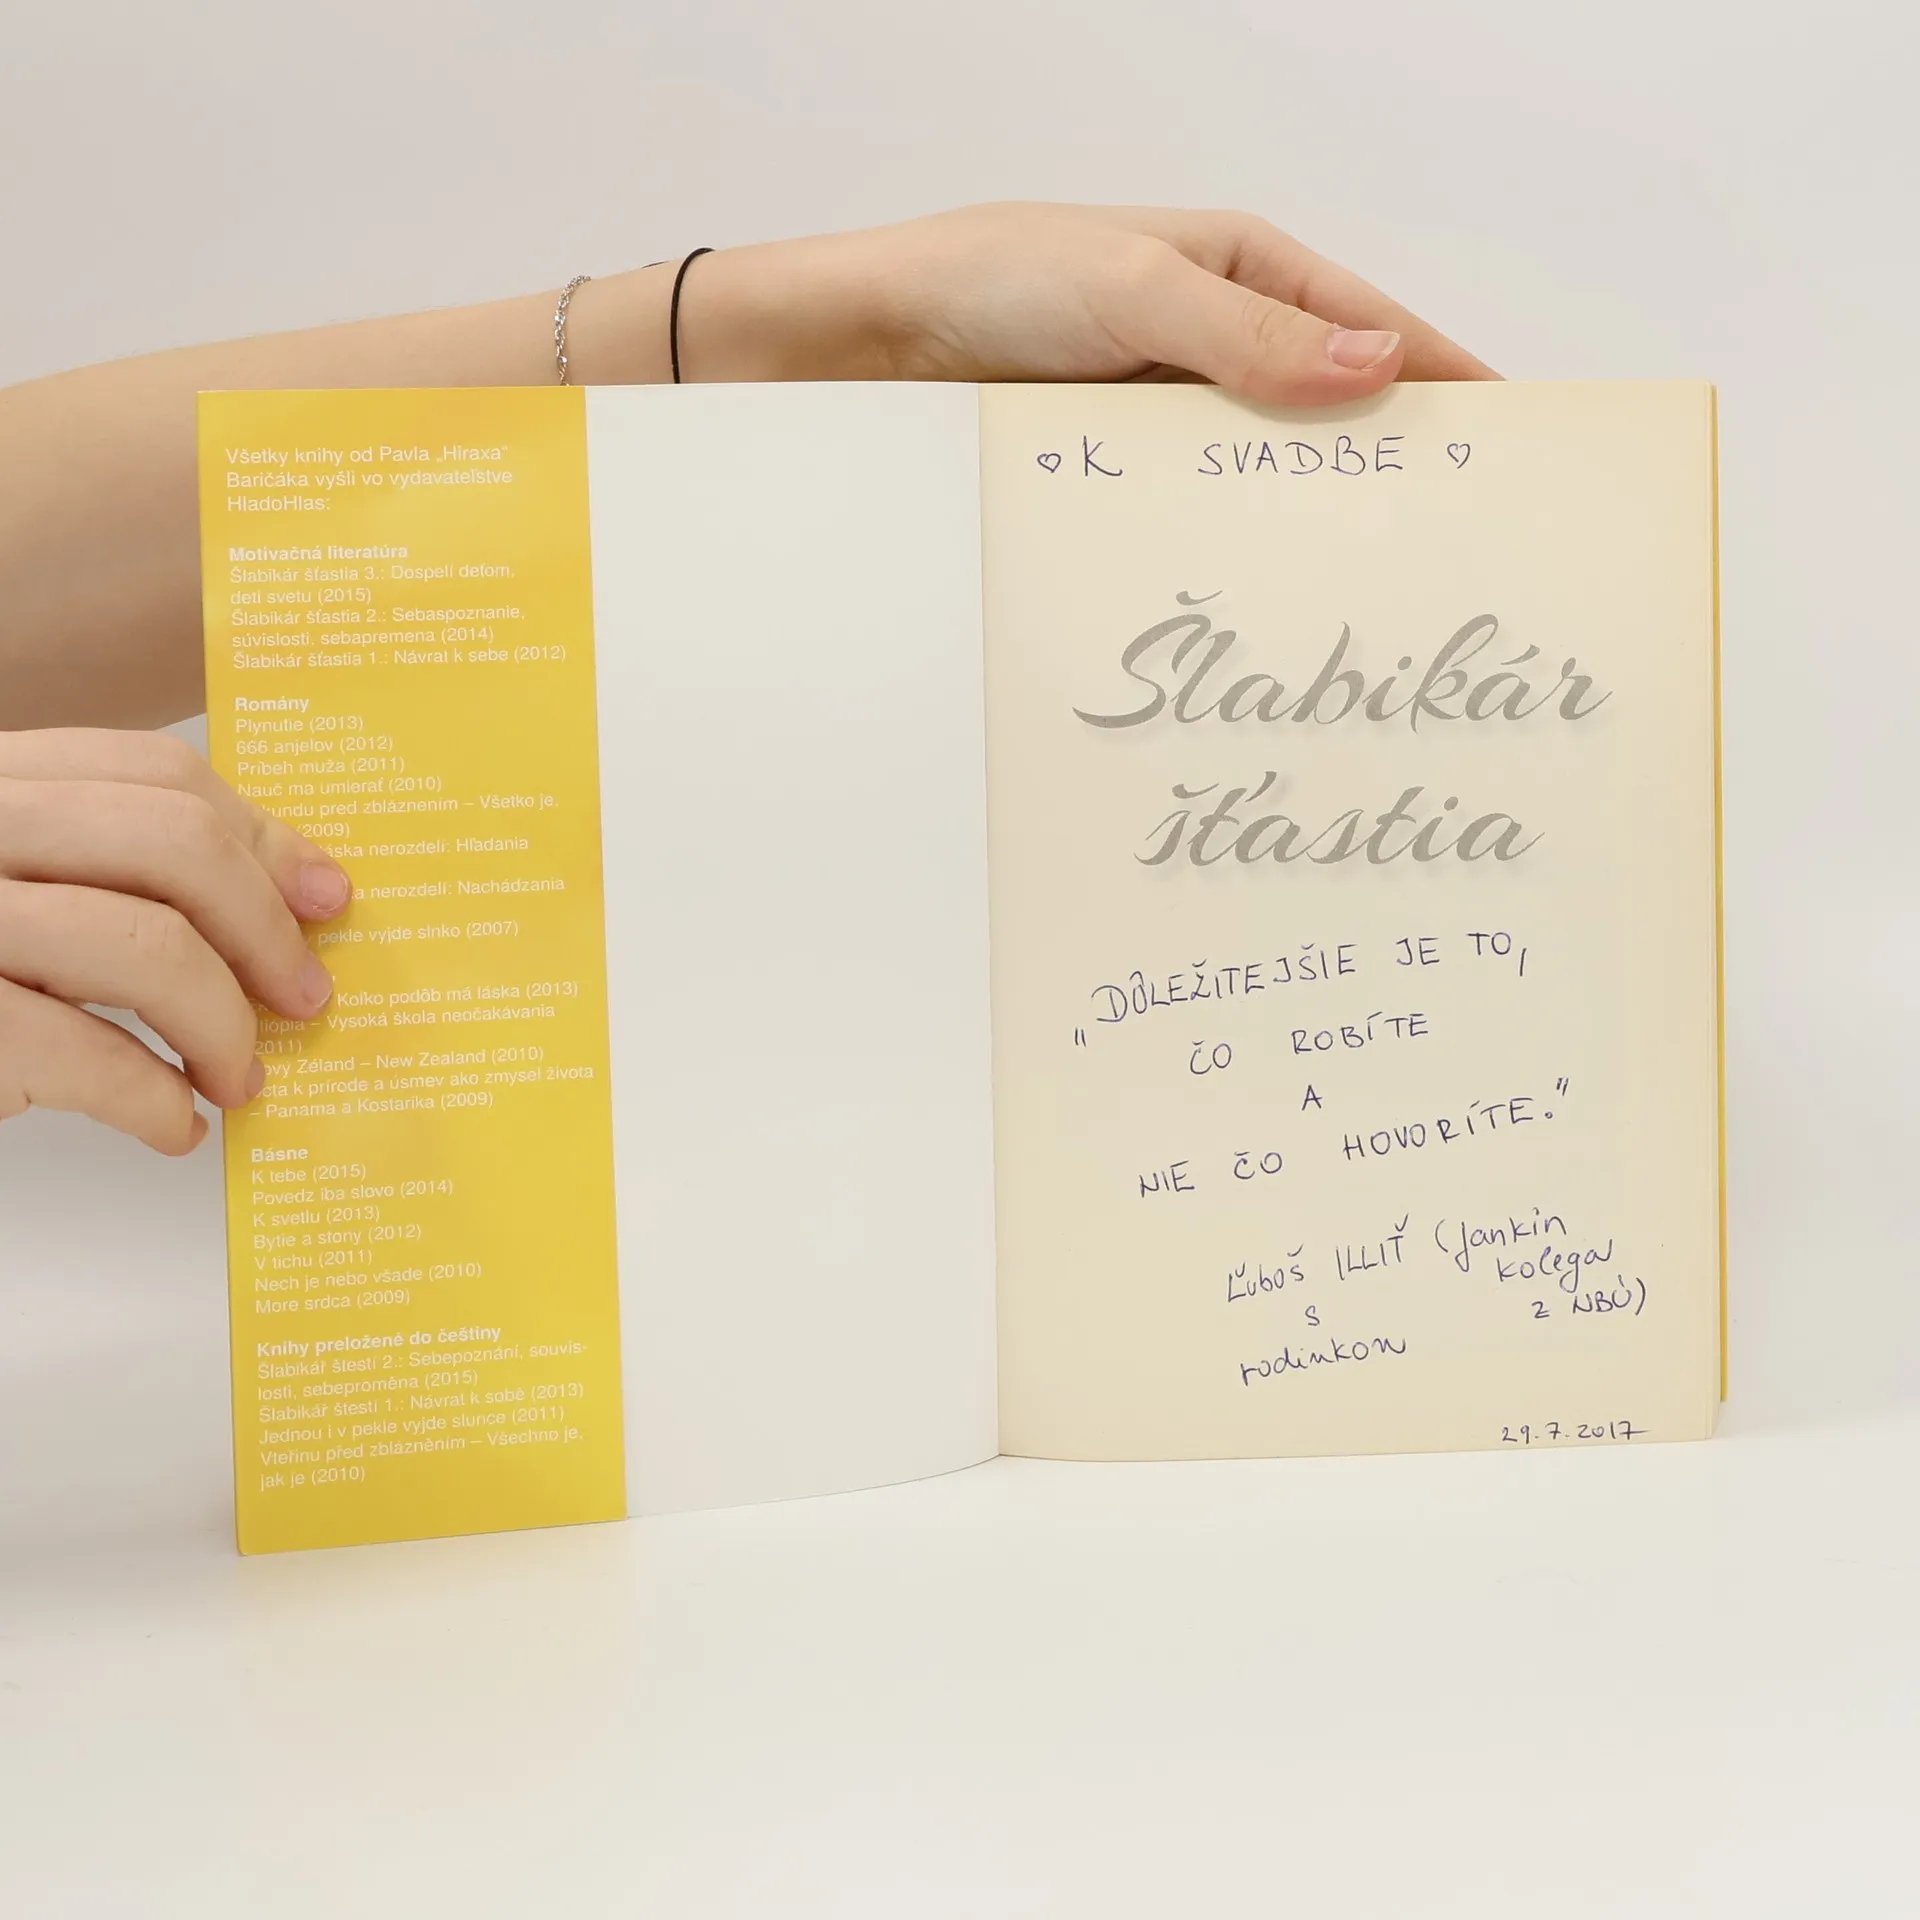 Všetky knihy od Pavla „Hiraxa"
Baričáka vyšli vo vydavateľstve
HladoHlas:
Motivačná literatúra
Šlabikár šťastia 3.: Dospelí deťom,
deti svetu (2015)
Šlabikár šťastia 2.: Sebaspoznanie,
súvislosti, sebapremena (2014)
Šlabikár šťastia 1.: Návrat k sebe (2012)
Romány
Plynutie (2013)
666 anjelov (2012)
Príbeh muža (2011)
Nauč ma umierať (2010)
pred zbláznením – Všetko je,
(2009)
nerozdelí: Hľadania
nerozdelí: Nachádzania
pekle vyjde slnko (2007)
Koľko podôb má láska (2013)
– Vysoká škola neočakávania
2011)
Zéland – New Zealand (2010)
k prírode a úsmev ako zmysel života
– Panama a Kostarika (2009)
Básne
K tebe (2015)
Povedz iba slovo (2014)
K svetlu (2013)
Bytie a stony (2012)
V tichu (2011)
Nech je nebo všade (2010)
More srdca (2009)
Knihy preložené do češtiny
Šlabikář štěstí 2.: Sebepoznání, souvis-
losti, sebeproměna (2015)
Šlabikář štěstí 1.: Návrat k sobě (2013)
Jednou i v pekle vyjde slunce (2011)
Vteřinu před zblázněním – Všechno je,
jak je (2010)
K SVADBE
Šlabikár
šťastia
„DÔLEŽITEJŠIE JE TO,
ČO ROBÍTE
A
NIE ČO HOVORÍTE."
Ľuboš ILLIŤ (Jankin
kolega
z NBÚ)
s
rodinkou
29.7.2017